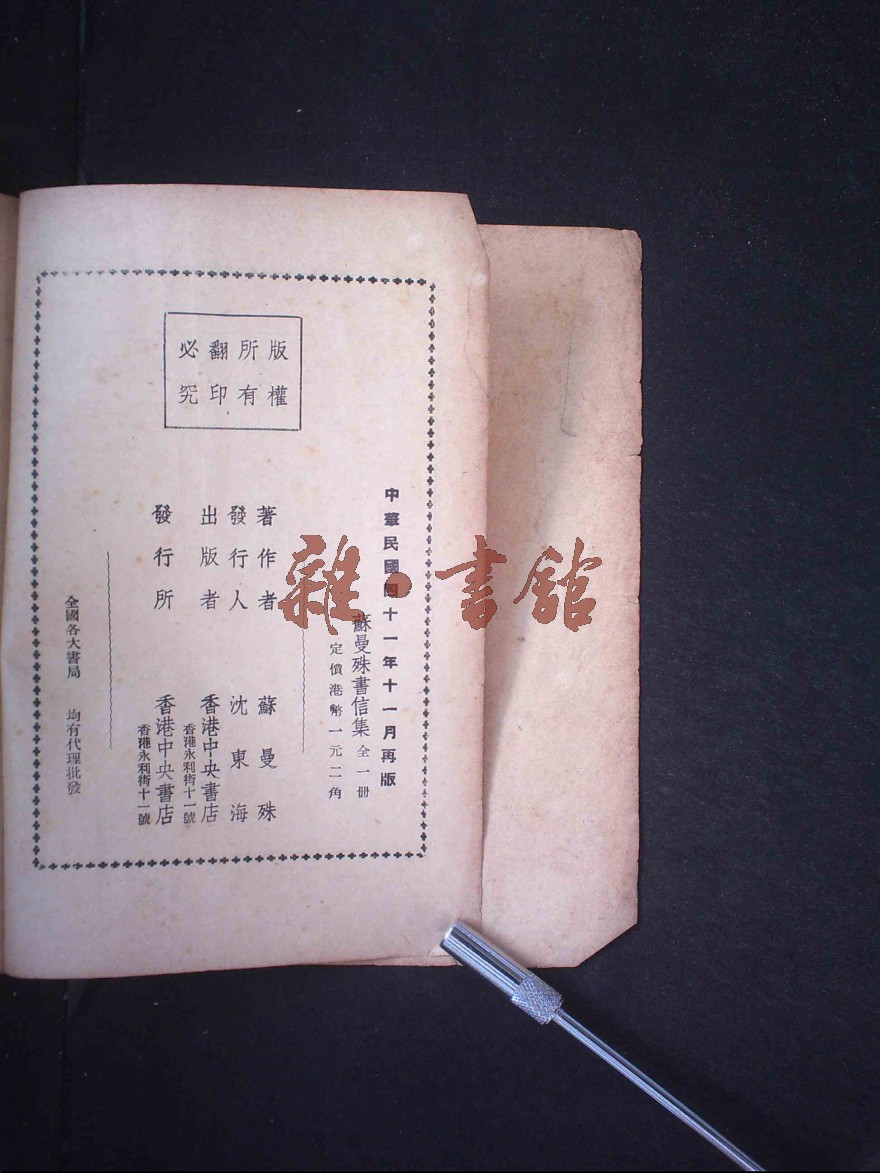 版權
所有
翻印
必究
中華民國四十一年十一月再版
蘇曼殊書信集 全一册
定價港幣一元二角
著作者 蘇曼殊
發行人 沈東海
出版者 香港中央書店
香港永利街十一號
發行所 香港中央書店
香港永利街十一號
全國各大書局 均有代理批發
雜·書館